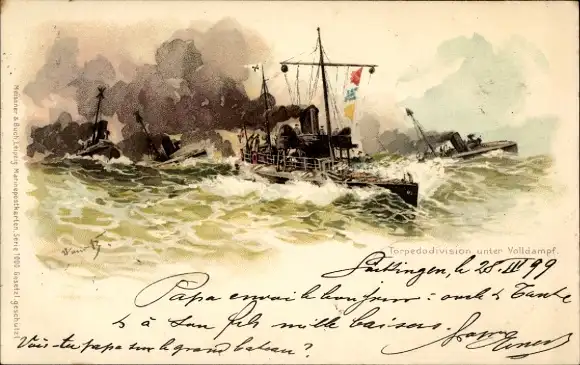 Meissner & Buch, Leipzig Marinepostkarten. Serie 1000. Gesetzl. geschützt.
Torpedodivision unter Volldampf.
le 28. IV 99
Papa envoi le bonjour: oncle & Tante
& à son fils mille baisers.
Vois-tu papa sur le grand bateau?